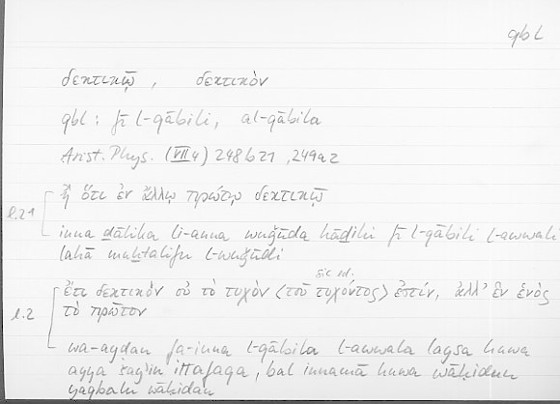 qbl
δεκτικῷ, δεκτικὸν
qbl: fī l-qābili, al-qābila
Arist. Phys. (VII 4) 248 b 21, 249 a 2
l.21 ἢ ὅτι ἐν ἄλλῳ πρώτῳ δεκτικῷ
inna ḏālika li-anna wuǧūda hāḏihi fī l-qābili l-awwali
lahā muḫtalifu l-wuǧūdi
sic ed.
l.2 ἔτι δεκτικὸν οὐ τὸ τυχὸν <τοῦ τυχόντος> ἐστίν, ἀλλ' ἓν ἑνὸς
τὸ πρῶτον
wa-ayḍan fa-inna l-qābila l-awwala laysa huwa
ayya šayʾin ittafaqa, bal innamā huwa wāḥidun
yaqbalu wāḥidan